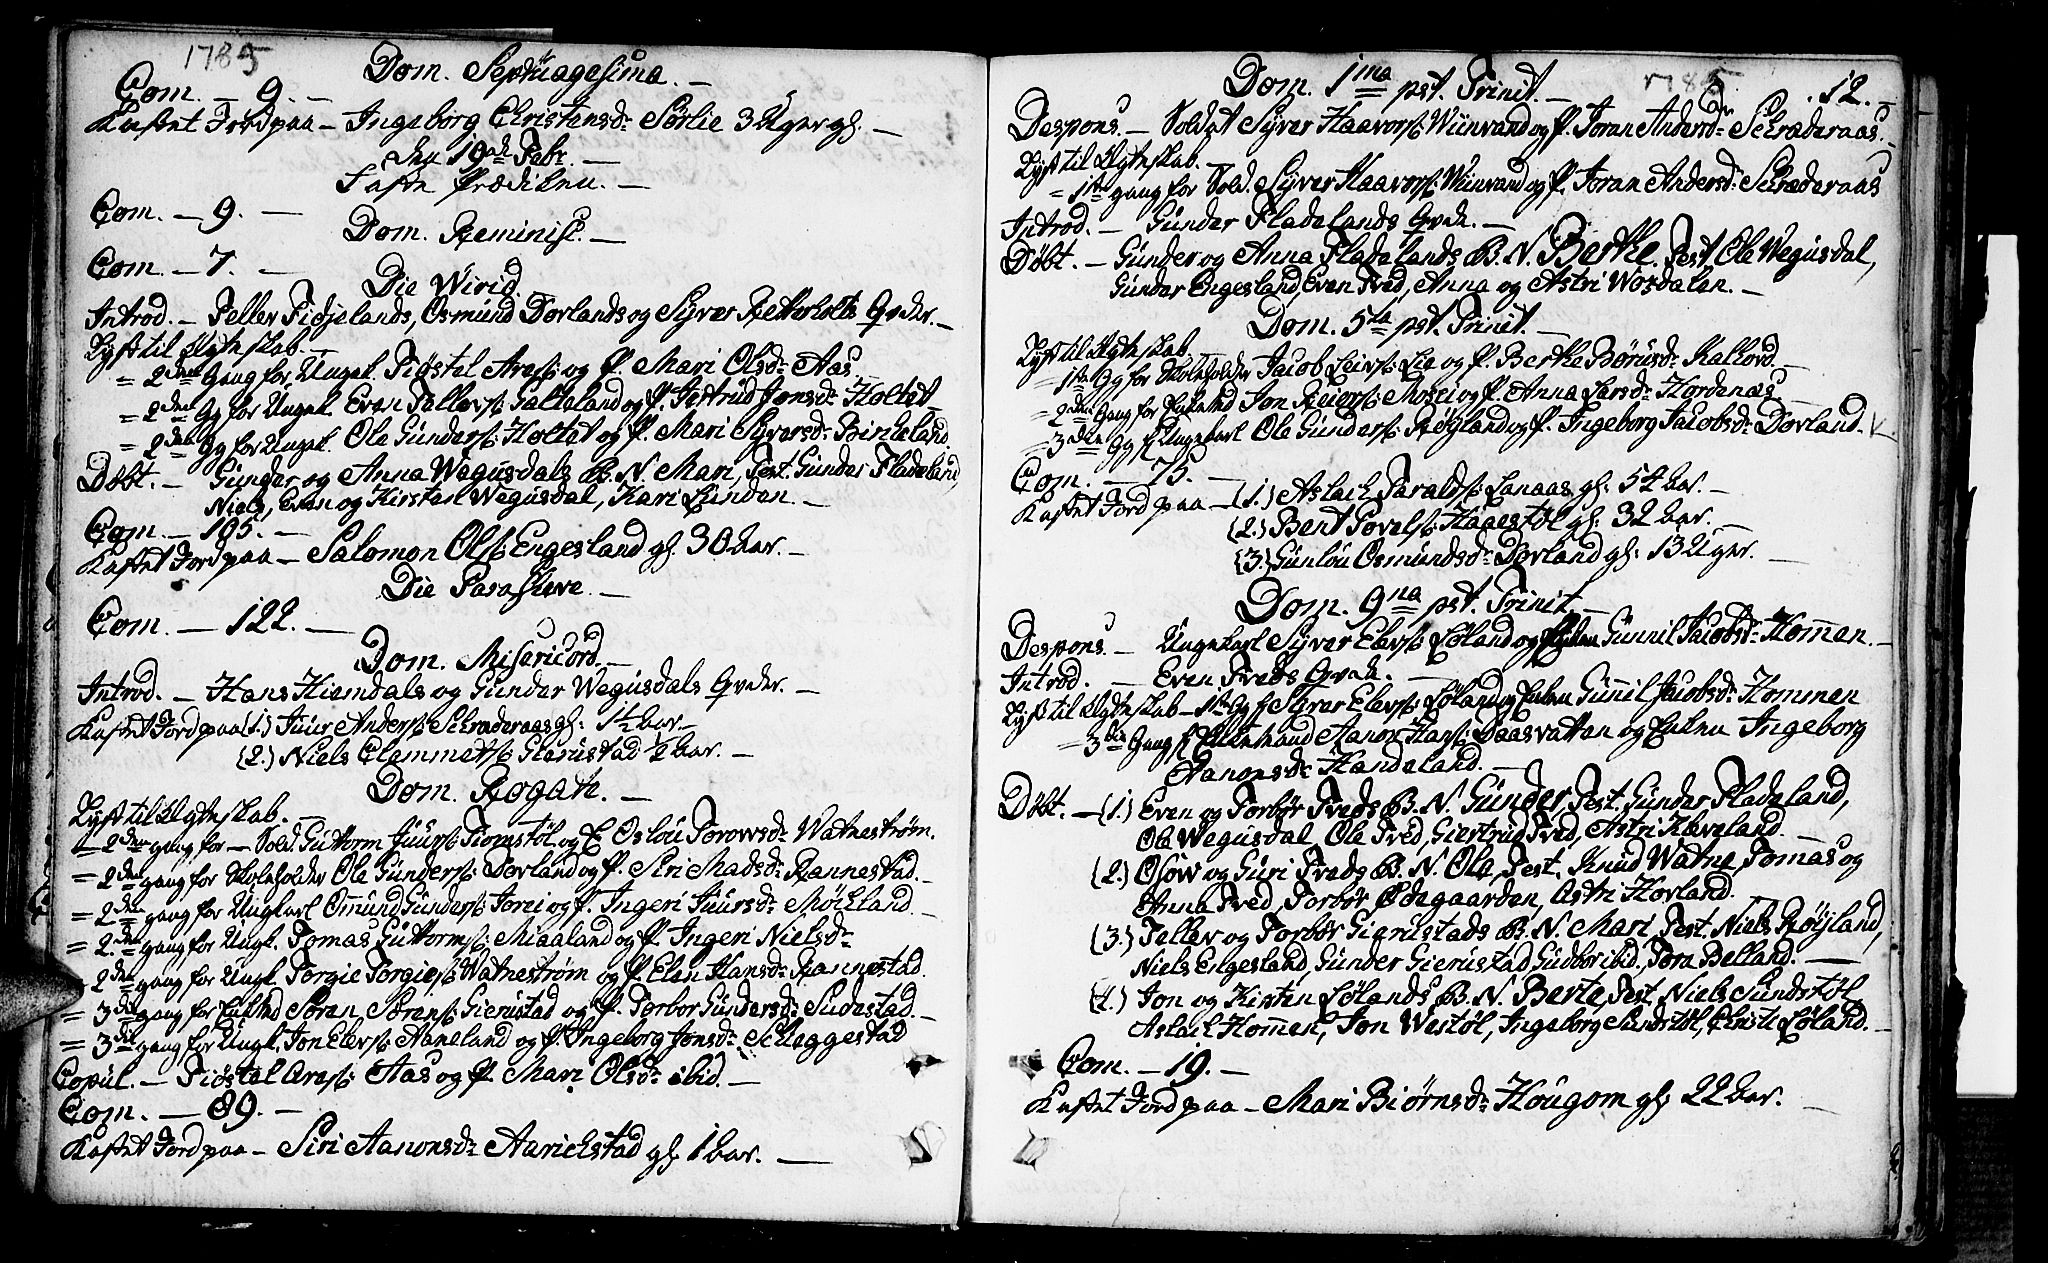 1785
Dom. Septuagesima. —
Com. — 9. —
Kastet Jord paa — Ingeborg Christensd: Sörlie 3 Uger gl. —
den 19de Febr. —
Faste Prædiken. —
Com. — 9. —
Dom. Reminisc. —
Com. — 7. —
Die Virid.
Introd. — Tellev Fidjelands, Osmund Dorlands og Syver Retterholts Qvder. —
Lyst til Ægteskab. —
= 2den Gang for Ungk. Tiöstel Aress: og P. Mari Olsd: Aas. —
= 2den Gg for Ungk. Even Tellevs: Galteland og P. Jertrud Jonsd: Holtet
= 2den Gg for Ungk. Ole Gunders: Holtet og P. Mari Syversd: Birkeland.
Döbt. — Gunder og Anna Wegusdals B. N. Mari, Test. Gunder Fladeland,
Niels, Even og Kirsten Wegusdal, Kari Linden. —
Com. — 105. —
Kastet Jord paa — Salomon Ols: Engesland gl. 30 Aar. —
Die Parasceve. —
Com. — 122. —
Dom. Misericord. —
Introd. — Hans Kiemdals og Gunder Wegusdals Qvder. —
Kastet Jord paa (1.) Juur Anders: Schræderaas gl: 1½ Aar —
(2.) Niels Clemmets: Gierustad ½ Aar. —
Dom. Rogate. —
Lyst til Ægteskab. —
= 2den gang for — Sold. Guttorm Juurs: Tiomstöl og E. Oslou Torowsd: Watneström.
= 2den gang for Skoleholder Ole Gunders: Dorland og P. Siri Madsd: Rannestad. —
= 2den gang for Ungkarl Omund Gunders: Jorei og P. Ingeri Juursd: Möckland. —
= 2den gang for Ungk. Tomas Guttorms: Miaaland og P. Ingeri Nielsd:
2den gang for Ungk. Torgie Torgies: Watneström og P. Elen Hansd: Rannestad.
= 3die gang for Enkemd Sören Sörens: Gierustad og P. Torbor Gundersd: Sudestad. —
= 3die gang for Ungk. Jon Elevs: Aaneland og P. Ingeborg Jonsd: Scheggestad
Copul. — Tiöstel Ares: Aas og P. Mari Olsd: ibid. —
Com. — 89. —
Kastet Jord paa — Siri Aanonsd: Aarickstad gl. 1 Aar. —
Dom. 1ma pst. Trinit. —
1785
12.
Despons. — Soldat Syver Haavors: Wiinvand og P. Joran Andersd: Schræderaas. —
Lyst til Ægteskab. —
= 1ste gang for Sold. Syver Haavors: Wiinvand og P. Joran Andersd: Schræderaas
Introd. — Gunder Fladelands Qvde. —
Döbt. — Gunder og Anna Fladelands B. N. Berthe. Test. Ole Wegusdal,
Gunder Engesland, Even Tved, Anna og Astri Wosdalen. —
Dom. 5ta pst. Trinit. —
Lyst til Ægteskab.
= 1ste Gg for Skoleholder Jacob Leivs: Lie og P. Berthe Börusd: Kallord. —
= 2den Gang for Enkemd Jon Reiers: Mosei og P. Anna Larsd: Hordenæs. —
= 3die Gg f. Ungekarl Ole Gunders: Röyland og P. Ingeborg Jacobsd: Dorland.
Com. — 75. —
Kastet Jord paa — (1.) Aslack Taralds: Lanaas gl: 54 Aar. —
(2.) Bent Tovels: Haaestöl gl: 32 Aar. —
(3.) Gunlou Osmundsd: Dorland gl: 13 Uger. —
Dom. 9na pst. Trinit. —
Despons. — Ungekarl Syver Elevs: Löland og Enken Gunnil Jacobsd: Hommen. —
Introd. — Even Tveds Qvde. —
Lyst til Ægteskab — 1ste Gg f. Syver Elevs: Löland og Enken Gunnil Jacobsd: Hommen
= 3die Gang f. Enkemand Aanon Hans: Daasvatten og Enken Ingeborg
Aanonsd: Handeland. —
Döbt. — (1.) Even og Torbör Tveds B. N. Gunder, Test. Gunder Fladeland,
Ole Wegusdal, Ole Tved, Giertrud Tved, Astri Kleveland. —
(2.) Osöw og Guri Tveds B. N. Ole, Test. Knud Watne, Tomas og
Anna Tved, Torbör Ödegaarden, Astri Hovland.
(3.) Tellev og Torbör Gierustads B. N. Mari Test. Niels Röijsland,
Niels Engesland, Gunder Gierustad, Gudbor ibid., Tora Belland. —
(4.) Jon og Kirsten Lölands B. N. Berte, Test. Niels Sundstöl,
Aslack Hommen, Jon Westöl, Ingeborg Sundstöl, Christi Löland. —
Com. — 19. —
Kastet Jord paa — Mari Biörnsd: Hougom gl 22 Aar. —